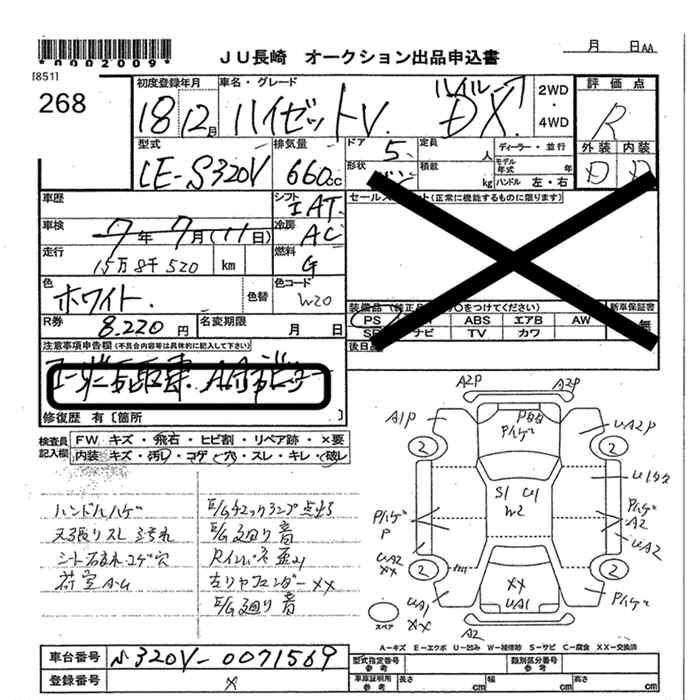 *0002009*
JU長崎 オークション出品申込書
月 日AA
[851]
268
初度登録年月
18 12月
車名・グレード
ハイゼットV. ハイルーフ DX.
2WD・4WD
評価点
R
外装 内装
D D
型式
LE-S320V
排気量
660cc
ドア
5
定員
人
ディーラー・並行
形状
積載
kg
モデル年式 年
ハンドル 左・右
車歴
シフト
IAT
セールスポイント(正常に機能するものに限ります)
車検
7年7月(11日)
冷房
AC
走行
15万8千520 km
燃料
G
色
ホワイト.
色替
色コード
W20
装備品(純正品に○をつけてください)
新車保証書
PS ABS エアB AW
SR ナビ TV カワ
無
R券
8.220円
名変期限
月 日
後日品
注意事項申告欄(不具合内容等は具体的に記入して下さい)
修復歴 有〔箇所 〕
検査員記入欄
FW キズ・飛石・ヒビ割・リペア跡・×要
内装 キズ・汚レ・コゲ・穴・スレ・キレ・破レ
ハンドルハゲ
天張りスレ 汚れ
シート破れ コゲ穴
荷室A・U
E/Gチェックランプ点灯
E/G廻り音
Rインパネ歪ミ
左リヤフェンダーXX
E/G廻り音
A2P A2P
A1P
UA2P
P飛石
Pハゲ
2 2
U1サビ
S1 U1
W2
Pハゲ
P
Pハゲ
A2
UA2
UA2
XX
2 2
XX
UA1
UA1
XX
Pハゲ
A2
スペア
A-キズ E-エクボ U-凹み W-補修跡 S-サビ C-腐食 XX-交換済
車台番号
S320V-0071569
登録番号
×
型式指定番号
参考
類別区分番号
参考
車庫証明用
参考
長さ cm
幅 cm
高さ cm